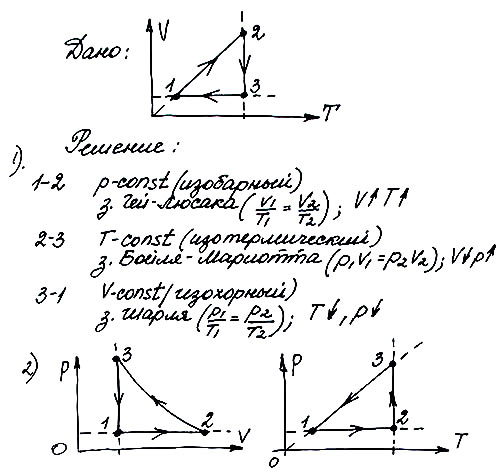 Дано:
V
2
1
3
T
Решение:
1).
1-2 p-const (изобарный)
з. Гей-Люсака (V1/T1 = V2/T2); V↑ T↑
2-3 T-const (изотермический)
з. Бойля-Мариотта (p1V1=p2V2); V↓ p↑
3-1 V-const (изохорный)
з. Шарля (p1/T1 = p2/T2); T↓, p↓
2)
p
3
1
2
0
V
p
3
1
2
0
T